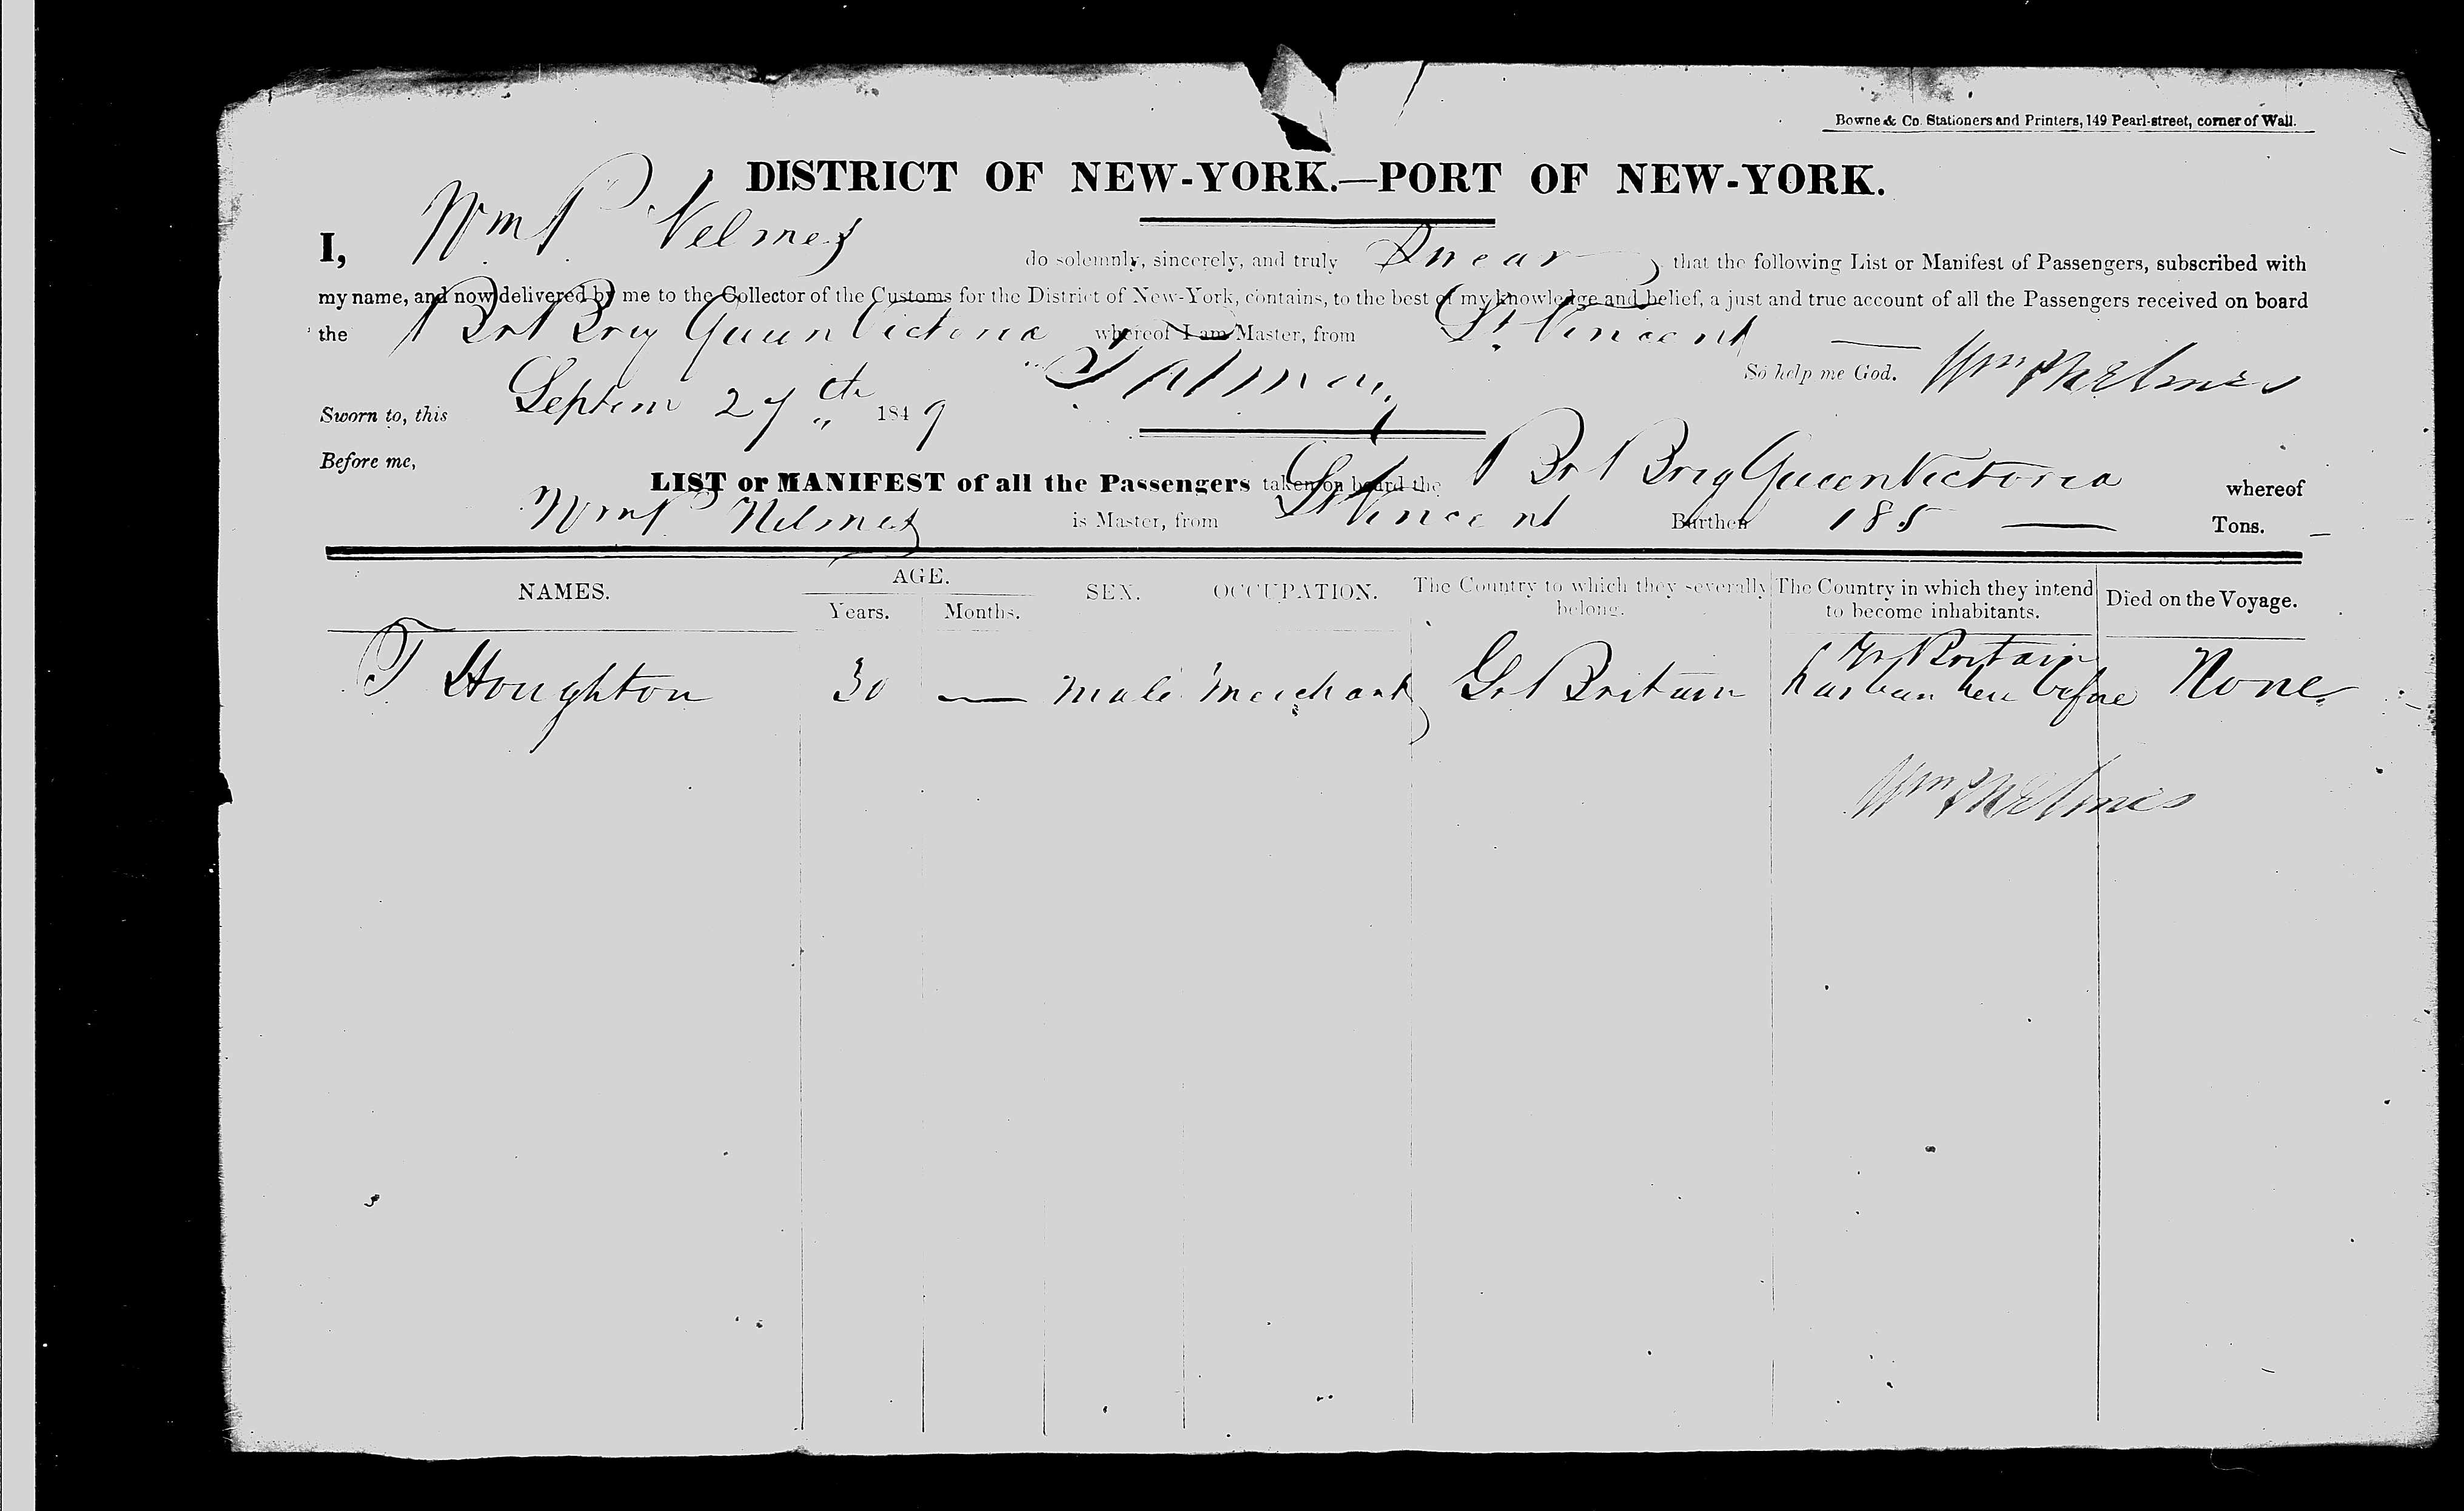 Bowne & Co. Stationers and Printers, 149 Pearl-street, corner of Wall.
DISTRICT OF NEW-YORK.—PORT OF NEW-YORK.
I, Wm P Nelmes do solemnly, sincerely, and truly Swear that the following List or Manifest of Passengers, subscribed with
my name, and now delivered by me to the Collector of the Customs for the District of New-York, contains, to the best of my knowledge and belief, a just and true account of all the Passengers received on board
the Br Brig Queen Victoria whereof I am Master, from St. Vincent
So help me God. Wm P Nelmes
Sworn to, this Septem 27th 1849
Before me,
LIST or MANIFEST of all the Passengers taken on board the Br Brig Queen Victoria whereof
Wm P Nelmes is Master, from St Vincent Burthen 185 — Tons.
NAMES. AGE. SEX. OCCUPATION. The Country to which they severally belong. The Country in which they intend to become inhabitants. Died on the Voyage.
Years. Months.
T Houghton 30 — male Merchant Gr Britain Gr Britain has been here before None
Wm P Nelmes